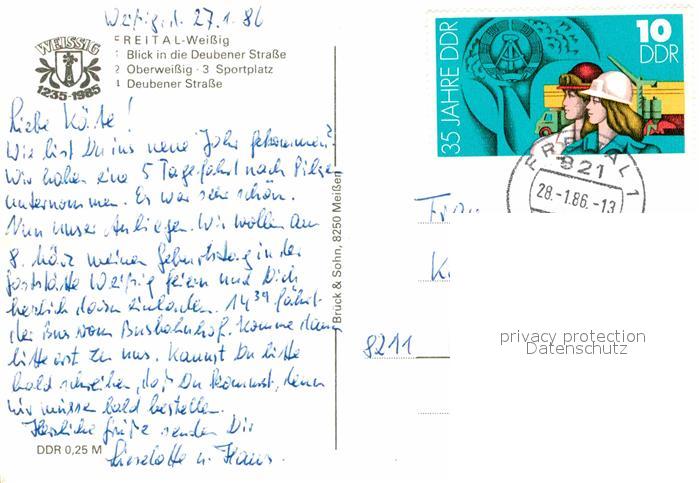 Weißig, d. 27.1.86
WEISSIG
1235-1985
FREITAL-Weißig
1 Blick in die Deubener Straße
2 Oberweißig · 3 Sportplatz
4 Deubener Straße
Liebe Käte!
Wie bist Du ins neue Jahr gekommen?
Wir haben eine 5 Tagefahrt nach Pilsen
unternommen. Es war sehr schön.
Nun unser Anliegen. Wir wollen am
8. März meinen Geburtstag in der
Gaststätte Weißig feiern und Dich
herzlich dazu einladen. 14 30 fährt
der Bus vom Busbahnhof. Komme dann
bitte erst zu uns. Kannst Du bitte
bald schreiben, daß Du kommst, denn
wir müssen bald bestellen.
Herzliche Grüße senden Dir
Lieselotte u. Hans.
DDR 0,25 M
Brück & Sohn, 8250 Meißen
35 JAHRE DDR
10
DDR
FREITAL 1
821
28.-1.86.-13
Frau
K.
8211
privacy protection
Datenschutz